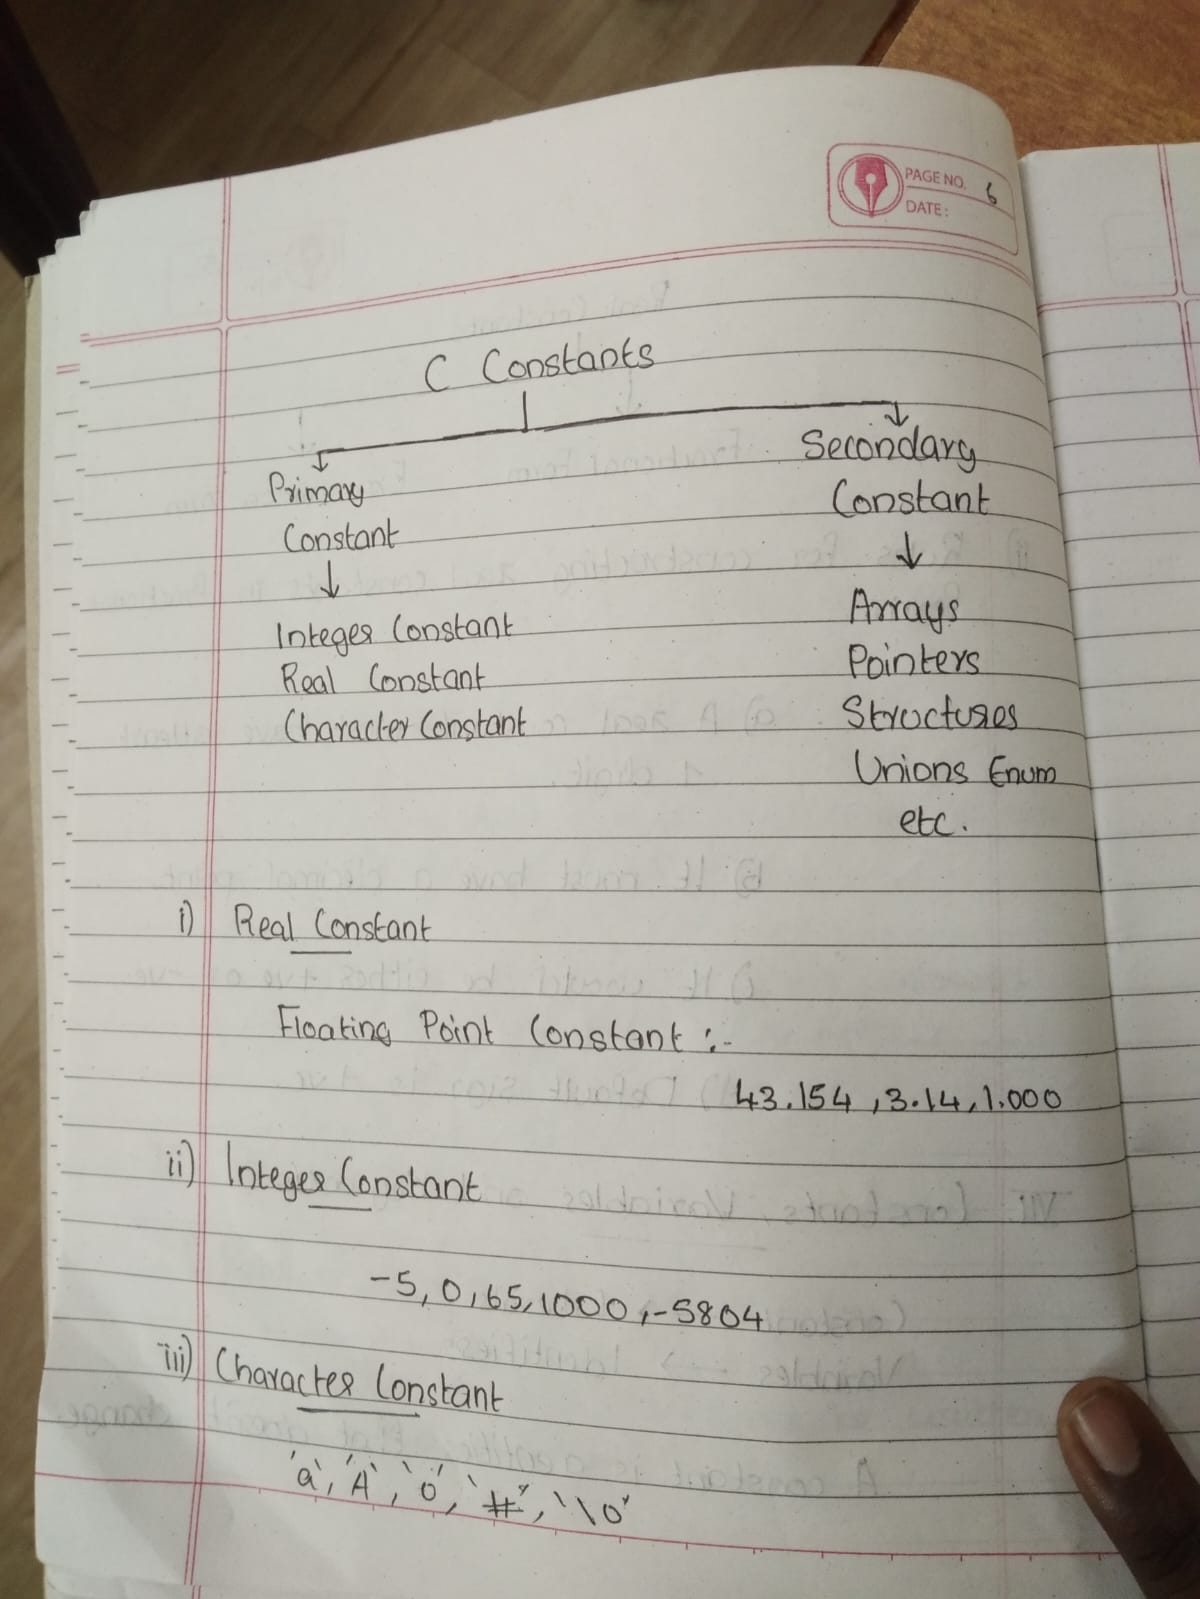 PAGE NO. 6
DATE:
C Constants
Primary
Constant
Integer Constant
Real Constant
Character Constant
Secondary
Constant
Arrays
Pointers
Structures
Unions Enum
etc.
i) Real Constant
Floating Point Constant :-
43.154, 3.14, 1.000
ii) Integer Constant
-5, 0, 65, 1000, -5804
iii) Character Constant
'a', 'A', '0', '#', '\0'